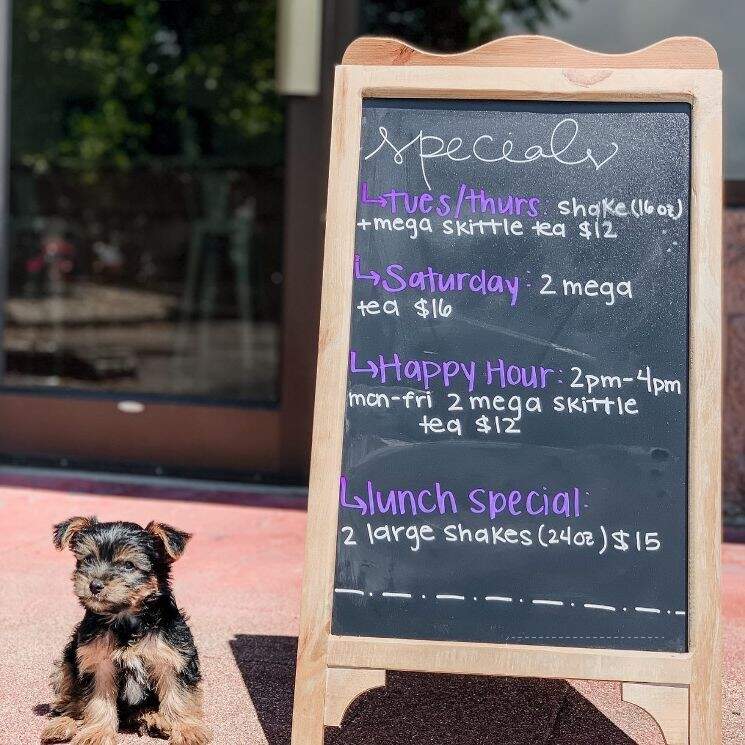 specials
↳Tues/Thurs. shake (16oz)
+mega skittle tea $12
↳Saturday: 2 mega
tea $16
↳Happy Hour: 2pm-4pm
mon-fri 2 mega skittle
tea $12
↳lunch special:
2 large shakes (24oz) $15